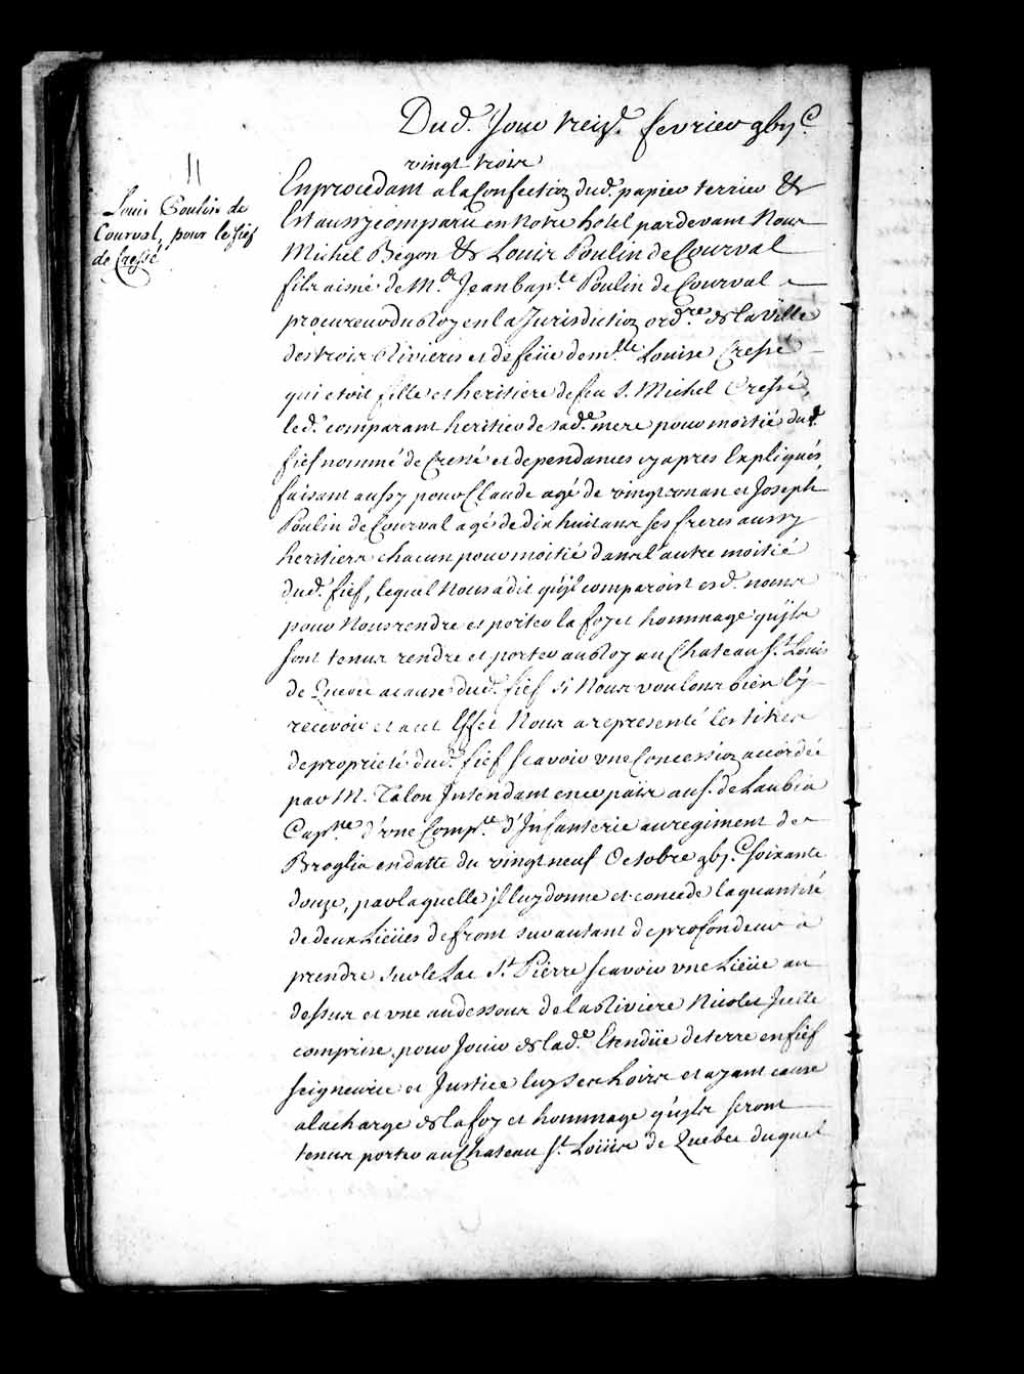 Dud. Jour treiz. fevrier gbijC.
vingt trois
11
Louis Poulin de
Courval, pour le fief
de Cressé
En procedant a la Confection dud. papier terrier &
Est aussy comparu en Notre hotel pardevant Nous
Michel Begon & Louis Poulin de Courval
fils aisné de M.e Jean bap.te Poulin de Courval
procureur du Roy en la Jurisdiction ord.re de la Ville
des trois Rivieres et de feüe dem.lle Louise Cressé
qui etoit fille et heritiere de feu S. Michel Cressé,
led. comparant heritier de sad.e mere pour moitié dud.
fief nommé de Cressé et dependances cy apres Expliqués,
faisant aussy pour Claude agé de vingt un an et Joseph
Poulin de Courval agé de dix huit ans ses freres aussy
heritiers chacun pour moitié dans l'autre moitié
dud. fief, lequel Nous a dit qu'jl comparoist esd. noms
pour Nous rendre et porter la foy et hommage qu'jls
sont tenus rendre et porter au Roy au Chateau St. Louis
de Quebec a cause dud. fief si Nous voulons bien l'y
recevoir et a cet Effet Nous a representé les titres
de proprieté dud. fief scavoir une Concession accordée
par M. Talon Intendant en ce païs au s. de Laubia
Cap.ne d'une Comp.e d'Infanterie au regiment de
Broglia en datte du vingt neuf Octobre gbj.C soixante
douze, par laquelle jl luy donne et concede la quantité
de deux Lieües de front sur autant de profondeur a
prendre sur le Lac St. Pierre scavoir une Lieüe au
dessus et une au dessous de la Riviere Nicolet Jcelle
comprise, pour Jouir de lad.e Etendüe de terre en fief
seigneurie et Justice luy ses hoirs et ayant cause
a la charge de la foy et hommage qu'jls seront
tenus porter au Chateau St. Loüis de Quebec duquel